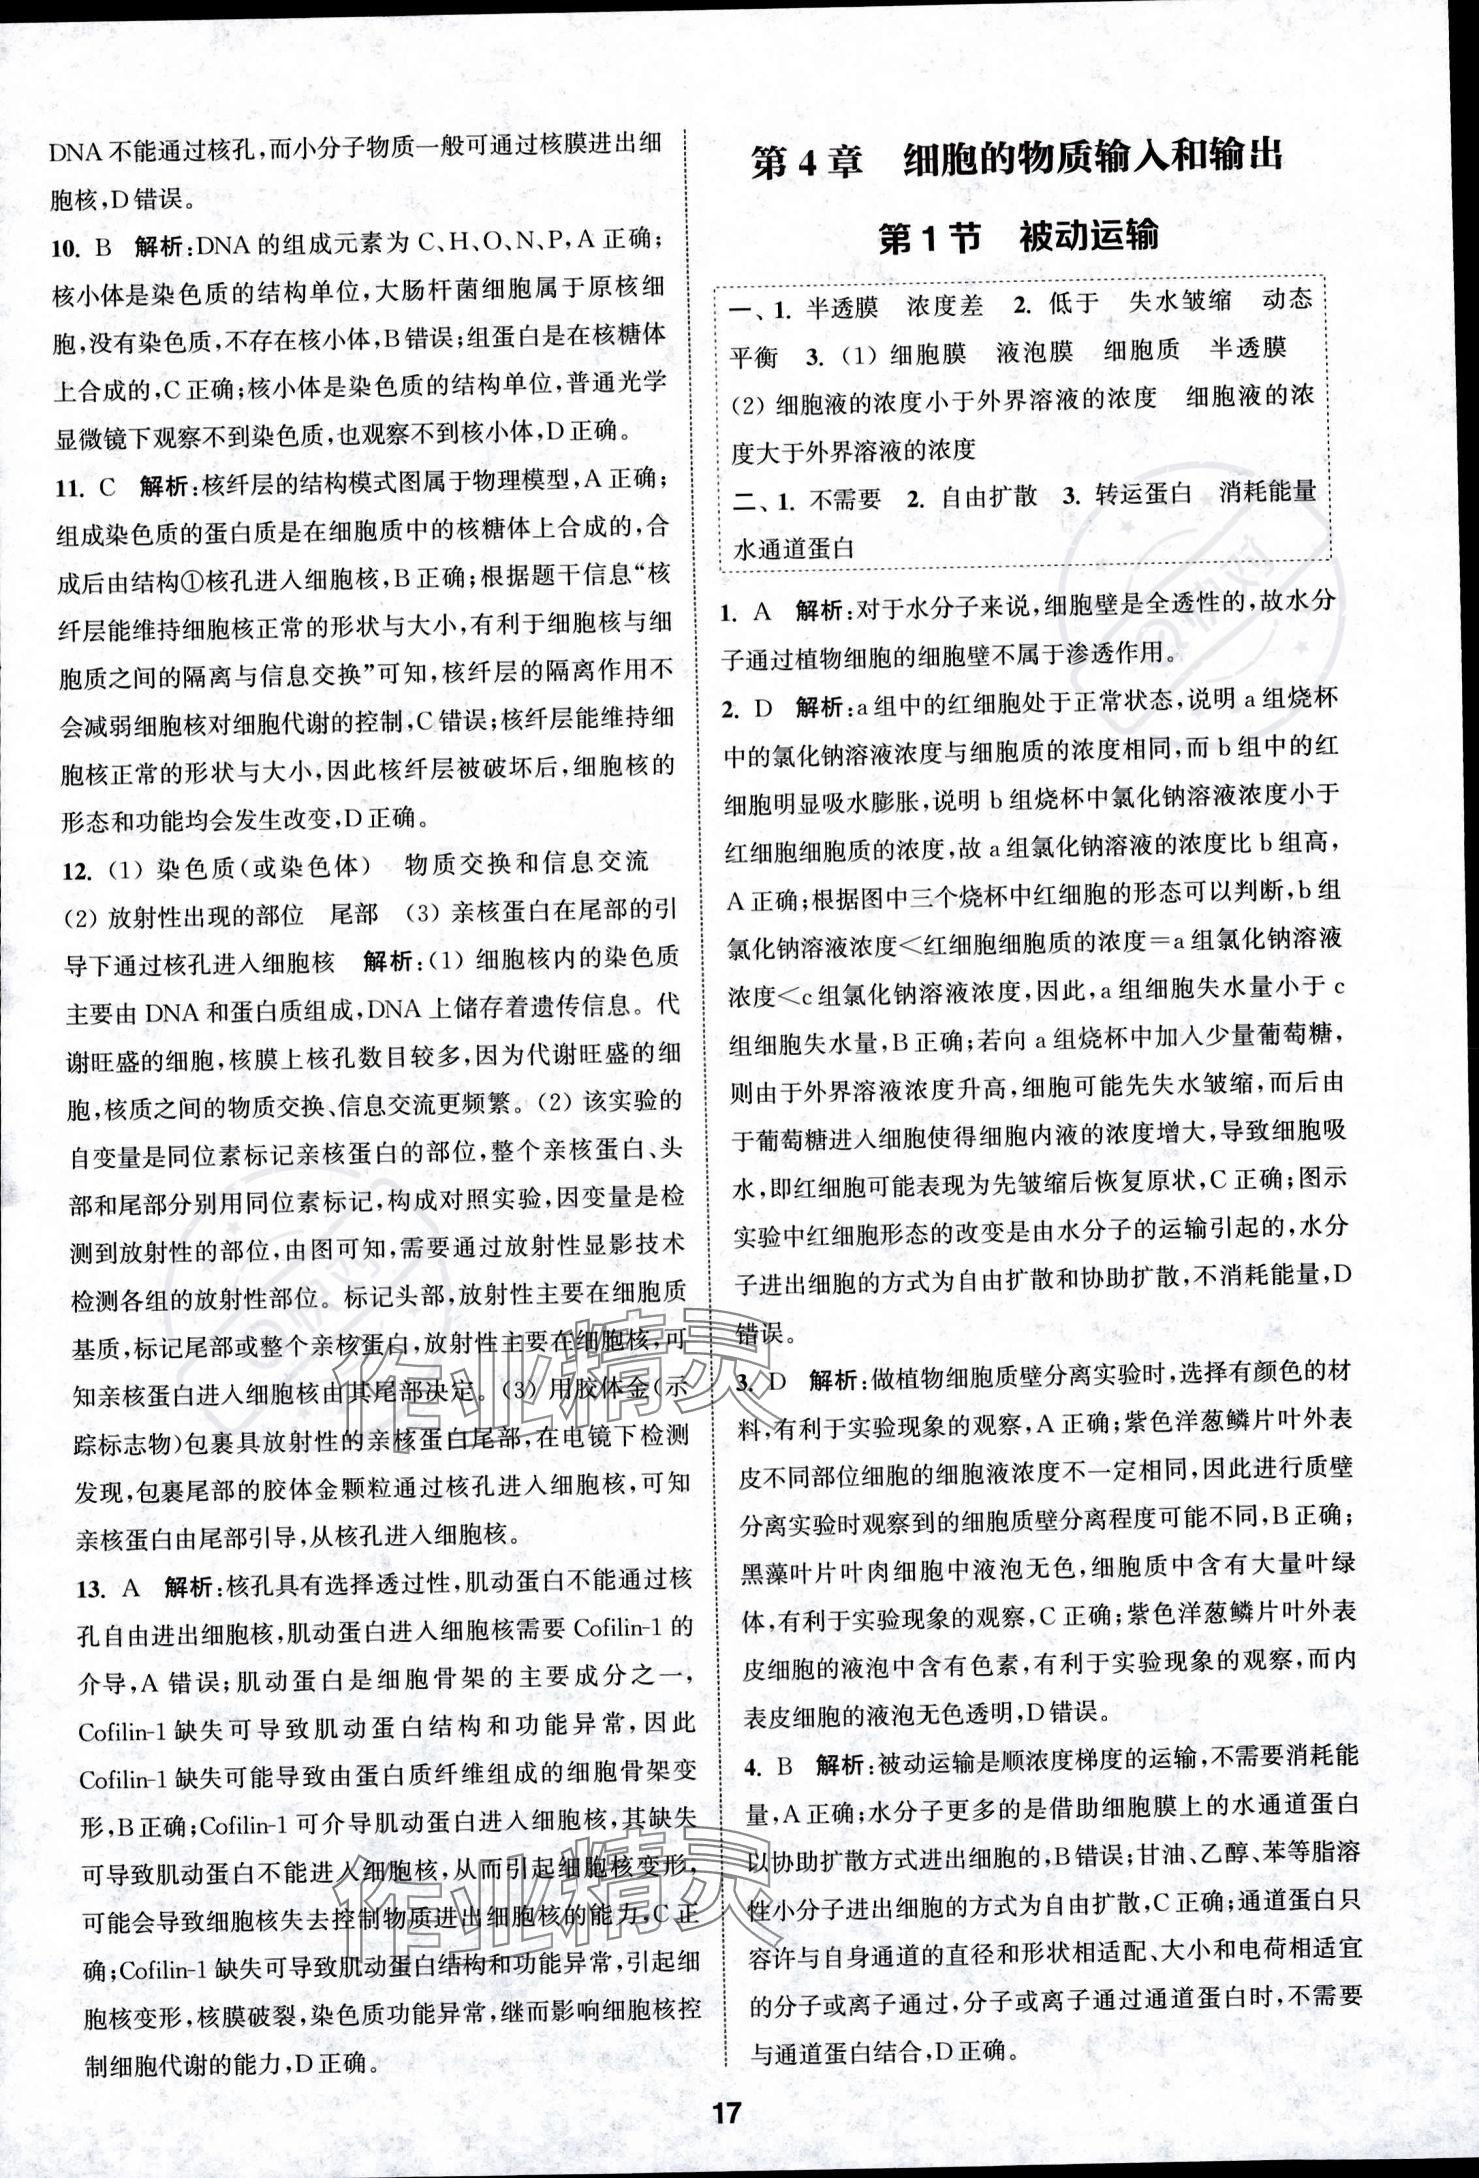 DNA不能通过核孔,而小分子物质一般可通过核膜进出细
胞核,D错误。
10. B 解析:DNA的组成元素为C、H、O、N、P,A正确;
核小体是染色质的结构单位,大肠杆菌细胞属于原核细
胞,没有染色质,不存在核小体,B错误;组蛋白是在核糖体
上合成的,C正确;核小体是染色质的结构单位,普通光学
显微镜下观察不到染色质,也观察不到核小体,D正确。
11. C 解析:核纤层的结构模式图属于物理模型,A正确;
组成染色质的蛋白质是在细胞质中的核糖体上合成的,合
成后由结构①核孔进入细胞核,B正确;根据题干信息“核
纤层能维持细胞核正常的形状与大小,有利于细胞核与细
胞质之间的隔离与信息交换”可知,核纤层的隔离作用不
会减弱细胞核对细胞代谢的控制,C错误;核纤层能维持细
胞核正常的形状与大小,因此核纤层被破坏后,细胞核的
形态和功能均会发生改变,D正确。
12. (1) 染色质(或染色体) 物质交换和信息交流
(2) 放射性出现的部位 尾部 (3) 亲核蛋白在尾部的引
导下通过核孔进入细胞核 解析:(1) 细胞核内的染色质
主要由DNA和蛋白质组成,DNA上储存着遗传信息。代
谢旺盛的细胞,核膜上核孔数目较多,因为代谢旺盛的细
胞,核质之间的物质交换、信息交流更频繁。(2) 该实验的
自变量是同位素标记亲核蛋白的部位,整个亲核蛋白、头
部和尾部分别用同位素标记,构成对照实验,因变量是检
测到放射性的部位,由图可知,需要通过放射性显影技术
检测各组的放射性部位。标记头部,放射性主要在细胞质
基质,标记尾部或整个亲核蛋白,放射性主要在细胞核,可
知亲核蛋白进入细胞核由其尾部决定。(3) 用胶体金(示
踪标志物)包裹具放射性的亲核蛋白尾部,在电镜下检测
发现,包裹尾部的胶体金颗粒通过核孔进入细胞核,可知
亲核蛋白由尾部引导,从核孔进入细胞核。
13. A 解析:核孔具有选择透过性,肌动蛋白不能通过核
孔自由进出细胞核,肌动蛋白进入细胞核需要Cofilin-1的
介导,A错误;肌动蛋白是细胞骨架的主要成分之一,
Cofilin-1缺失可导致肌动蛋白结构和功能异常,因此
Cofilin-1缺失可能导致由蛋白质纤维组成的细胞骨架变
形,B正确;Cofilin-1可介导肌动蛋白进入细胞核,其缺失
可导致肌动蛋白不能进入细胞核,从而引起细胞核变形,
可能会导致细胞核失去控制物质进出细胞核的能力,C正
确;Cofilin-1缺失可导致肌动蛋白结构和功能异常,引起细
胞核变形,核膜破裂,染色质功能异常,继而影响细胞核控
制细胞代谢的能力,D正确。
第4章 细胞的物质输入和输出
第1节 被动运输
一、1. 半透膜 浓度差 2. 低于 失水皱缩 动态
平衡 3. (1) 细胞膜 液泡膜 细胞质 半透膜
(2) 细胞液的浓度小于外界溶液的浓度 细胞液的浓
度大于外界溶液的浓度
二、1. 不需要 2. 自由扩散 3. 转运蛋白 消耗能量
水通道蛋白
1. A 解析:对于水分子来说,细胞壁是全透性的,故水分
子通过植物细胞的细胞壁不属于渗透作用。
2. D 解析:a组中的红细胞处于正常状态,说明a组烧杯
中的氯化钠溶液浓度与细胞质的浓度相同,而b组中的红
细胞明显吸水膨胀,说明b组烧杯中氯化钠溶液浓度小于
红细胞细胞质的浓度,故a组氯化钠溶液的浓度比b组高,
A正确;根据图中三个烧杯中红细胞的形态可以判断,b组
氯化钠溶液浓度<红细胞细胞质的浓度=a组氯化钠溶液
浓度<c组氯化钠溶液浓度,因此,a组细胞失水量小于c
组细胞失水量,B正确;若向a组烧杯中加入少量葡萄糖,
则由于外界溶液浓度升高,细胞可能先失水皱缩,而后由
于葡萄糖进入细胞使得细胞内液的浓度增大,导致细胞吸
水,即红细胞可能表现为先皱缩后恢复原状,C正确;图示
实验中红细胞形态的改变是由水分子的运输引起的,水分
子进出细胞的方式为自由扩散和协助扩散,不消耗能量,D
错误。
3. D 解析:做植物细胞质壁分离实验时,选择有颜色的材
料,有利于实验现象的观察,A正确;紫色洋葱鳞片叶外表
皮不同部位细胞的细胞液浓度不一定相同,因此进行质壁
分离实验时观察到的细胞质壁分离程度可能不同,B正确;
黑藻叶片叶肉细胞中液泡无色,细胞质中含有大量叶绿
体,有利于实验现象的观察,C正确;紫色洋葱鳞片叶外表
皮细胞的液泡中含有色素,有利于实验现象的观察,而内
表皮细胞的液泡无色透明,D错误。
4. B 解析:被动运输是顺浓度梯度的运输,不需要消耗能
量,A正确;水分子更多的是借助细胞膜上的水通道蛋白
以协助扩散方式进出细胞的,B错误;甘油、乙醇、苯等脂溶
性小分子进出细胞的方式为自由扩散,C正确;通道蛋白只
容许与自身通道的直径和形状相适配、大小和电荷相适宜
的分子或离子通过,分子或离子通过通道蛋白时,不需要
与通道蛋白结合,D正确。
作业精灵
作业精灵
17